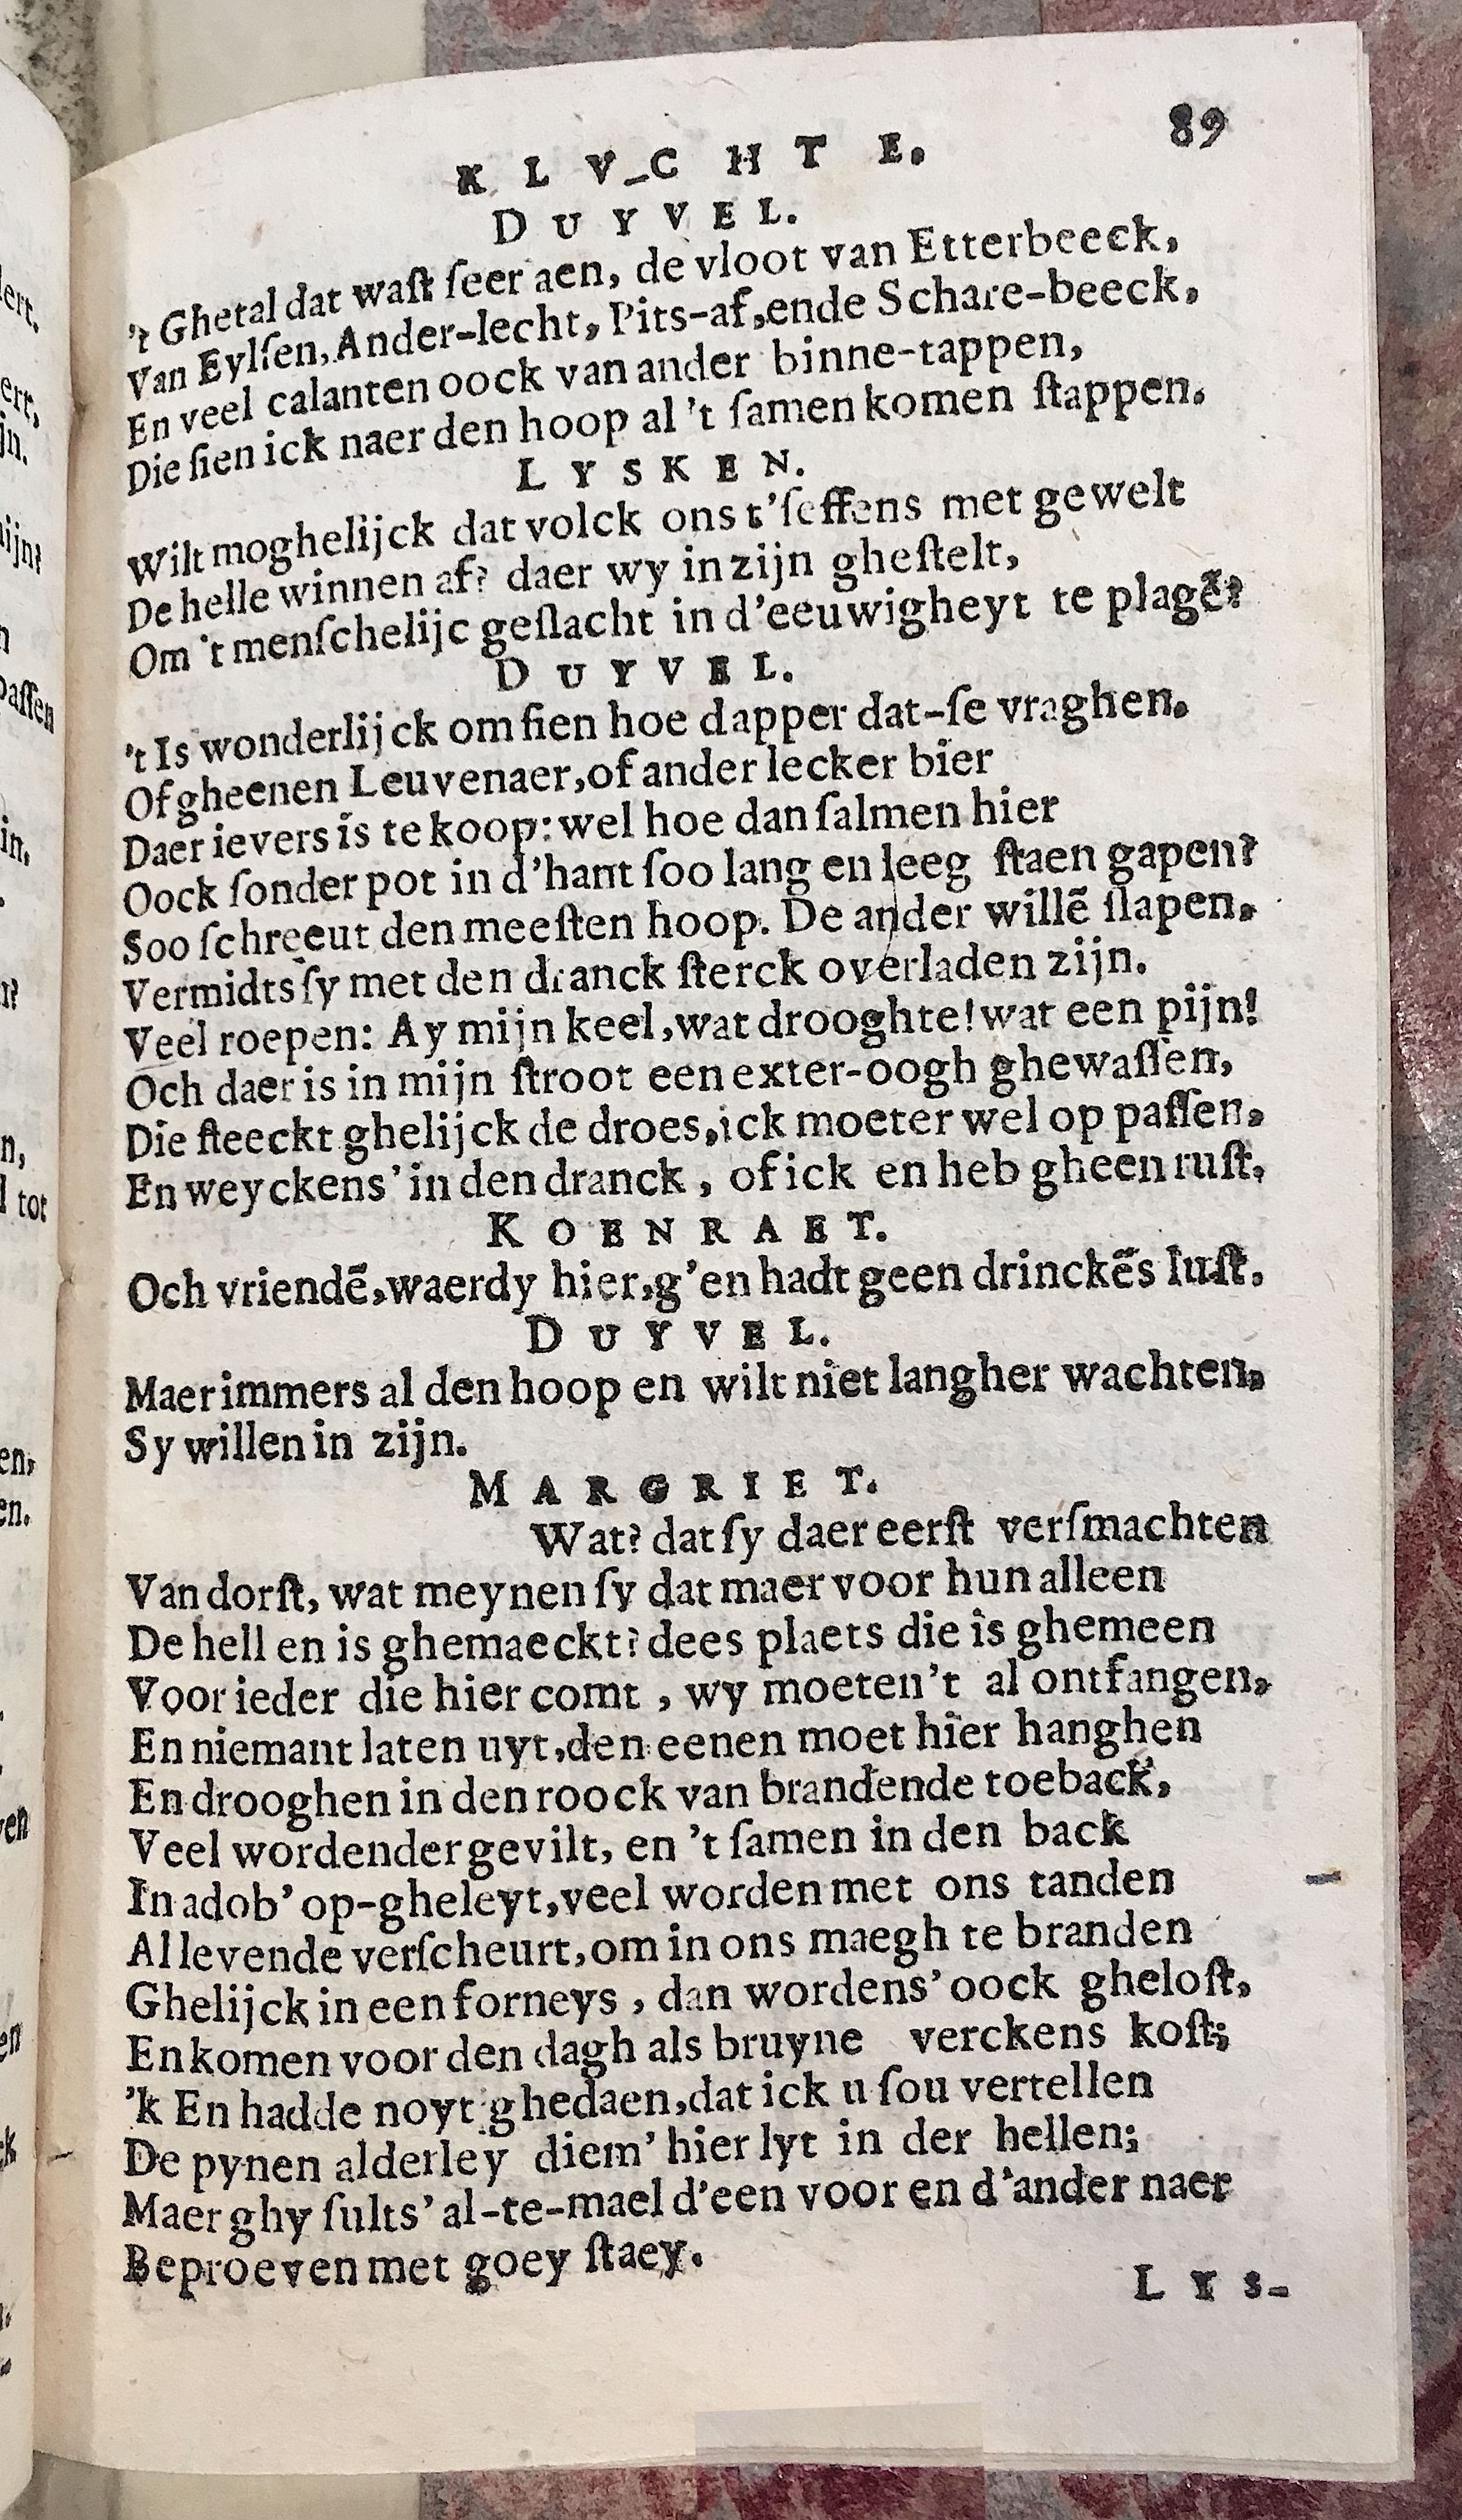 KLVCHTE. 89
DUYVEL.
't Ghetal dat waſt ſeer aen, de vloot van Etterbeeck,
Van Eylſen, Ander-lecht, Pits-af, ende Schare-beeck,
En veel calanten oock van ander binne-tappen,
Die ſien ick naer den hoop al 't ſamen komen ſtappen.
LYSKEN.
Wilt moghelijck dat volck ons t'ſeffens met gewelt
De helle winnen af? daer wy in zijn gheſtelt,
Om 't menſchelijc geſlacht in d'eeuwigheyt te plagẽ?
DUYVEL.
't Is wonderlijck om ſien hoe dapper dat-ſe vraghen.
Of gheenen Leuvenaer, of ander lecker bier
Daer ievers is te koop: wel hoe dan ſalmen hier
Oock ſonder pot in d'hant ſoo lang en leeg ſtaen gapen?
Soo ſchreeut den meeſten hoop. De ander willẽ ſlapen,
Vermidts ſy met den dranck ſterck overladen zijn.
Veel roepen: Ay mijn keel, wat drooghte! wat een pijn!
Och daer is in mijn ſtroot een exter-oogh ghewaſſen,
Die ſteeckt ghelijck de droes, ick moeter wel op paſſen,
En weyckens' in den dranck, of ick en heb gheen ruſt,
KOENRAET.
Och vriendẽ, waerdy hier, g'en hadt geen drinckẽs luſt.
DUYVEL.
Maer immers al den hoop en wilt niet langher wachten,
Sy willen in zijn.
MARGRIET.
Wat? dat ſy daer eerſt verſmachten
Van dorſt, wat meynen ſy dat maer voor hun alleen
De hell en is ghemaeckt? dees plaets die is ghemeen
Voor ieder die hier comt, wy moeten't al ontfangen,
En niemant laten uyt, den eenen moet hier hanghen
En drooghen in den roock van brandende toeback,
Veel wordender gevilt, en 't ſamen in den back
In adob' op-gheleyt, veel worden met ons tanden
Al levende verſcheurt, om in ons maegh te branden
Ghelijck in een forneys, dan wordens' oock gheloſt,
En komen voor den dagh als bruyne verckens koſt;
'k En hadde noyt ghedaen, dat ick u ſou vertellen
De pynen alderley diem' hier lyt in der hellen;
Maer ghy ſults' al-te-mael d'een voor en d'ander naer
Beproeven met goey ſtaey.
LYS-